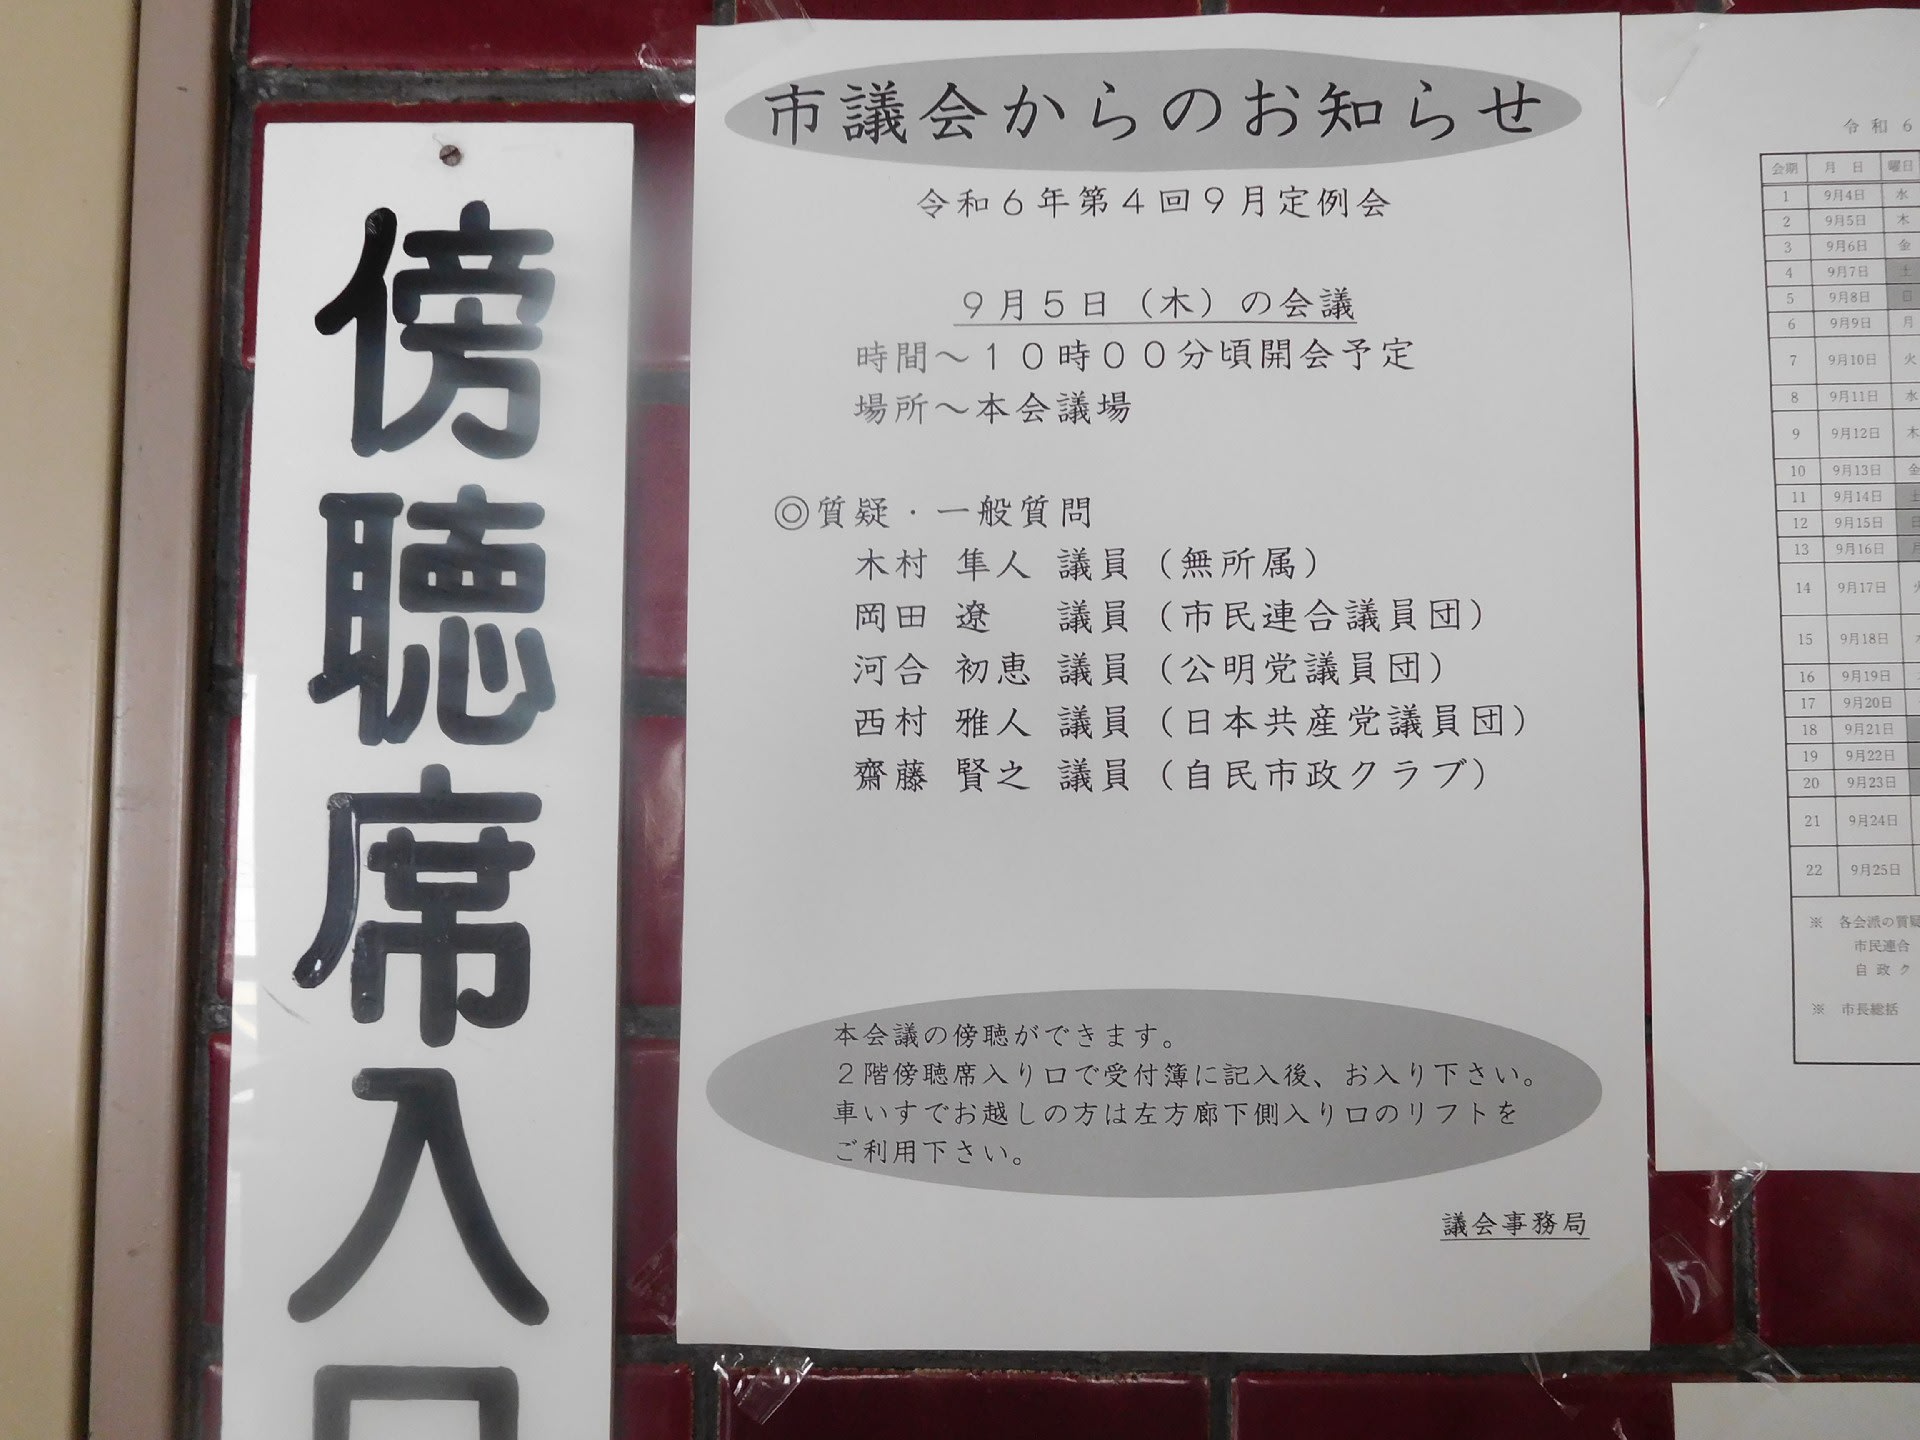 傍聴席入口
市議会からのお知らせ
令和6年第4回9月定例会
9月5日（木）の会議
時間～10時00分頃開会予定
場所～本会議場
◎質疑・一般質問
木村 隼人 議員（無所属）
岡田 遼 議員（市民連合議員団）
河合 初恵 議員（公明党議員団）
西村 雅人 議員（日本共産党議員団）
齋藤 賢之 議員（自民市政クラブ）
本会議の傍聴ができます。
2階傍聴席入り口で受付簿に記入後、お入り下さい。
車いすでお越しの方は左方廊下側入り口のリフトを
ご利用下さい。
議会事務局
令和6
会期 月日 曜日
1 9月4日 水
2 9月5日 木
3 9月6日 金
4 9月7日 土
5 9月8日 日
6 9月9日 月
7 9月10日 火
8 9月11日 水
9 9月12日 木
10 9月13日 金
11 9月14日 土
12 9月15日 日
13 9月16日 月
14 9月17日
15 9月18日
16 9月19日
17 9月20日
18 9月21日
19 9月22日
20 9月23日
21 9月24日
22 9月25日
※ 各会派の質疑
市民連合
自政ク
※ 市長総括